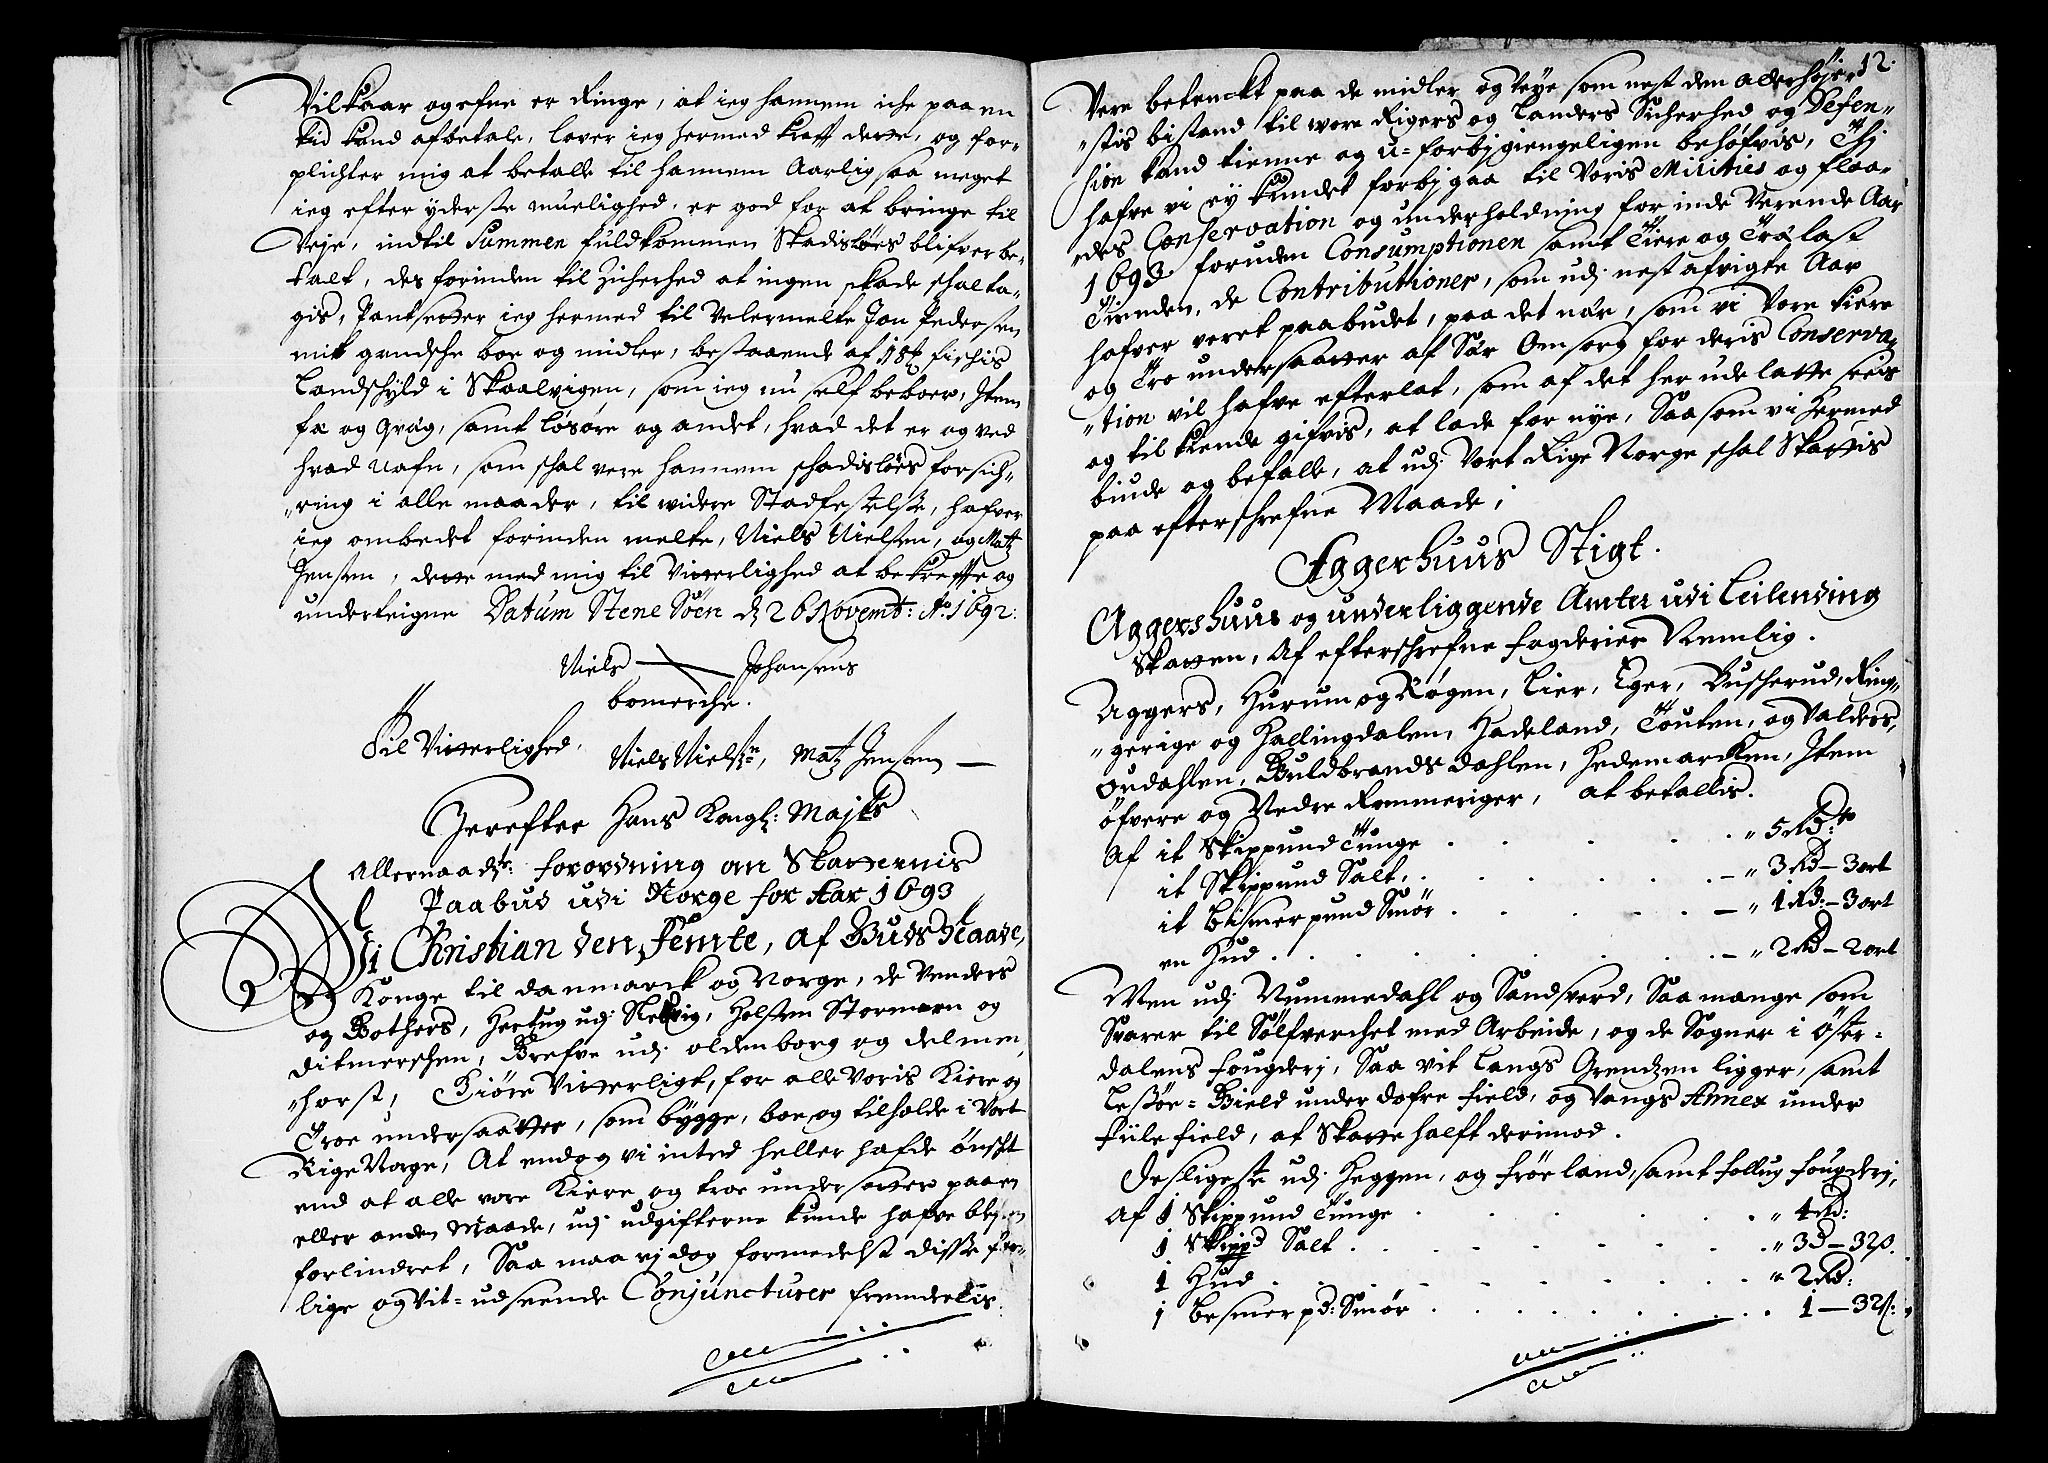 Vilkaar og efne er Ringe, at ieg hannem iche paa en
tid kand afbetale, lover ieg hermed krafft dette, og for-
plichter mig at betalle til hannem Aarlig saa meget
ieg efter yderste muelighed, er god for at bringe til
Veje, indtil Summen fuldkommen Skadisløes blifver be-
talt, des forinden til Zicherhed at ingen skade schal ta-
gis, Pantsetter ieg hermed til Velermelte Jon Pedersen
mit gandsche boe og midler, bestaaende af fischis
Landschyld i Skaalvigen, som ieg nu self beboer, Item
fæ og qvæg, samt løsøre og andet, hvad det er og ved
hvad Nafn, som schal vere hannem schadisløes forsich-
"ring i alle maader, til widere Stadfestelsse, hafver
ieg ombedet forinden melte, Niels Nielsen, og Matz
Jensen, dette med mig til Vitterlighed at bekreffte og
underteigne Datum Stene Søen d 26 Novemb: Ao 1692:
Niels Johansens
bomerche.
Til Vitterlighed, Niels Nielsen, Matz Jensen —
Herefter Hans Kongl: Mayts
Allernaadste: forordning om Skatternis
Paabud udi Norge for Aar 1693
Vi Christian den Femte, af Guds Naade,
Konge til danmarck og Norge, de Venders
og Gothers, Hertug udj Slesvig, Holsten Stormarn og
ditmerschen, Grefve udj oldenborg og delmen,
"horst, Giøre Vitterligt, for alle Voris Kiere og
Troe undersaatter, som bygge, boe og tilholde i Vort
Rige Norge, At endog vi inted heller hafde ønscht
end at alle vore Kiere og troe undersatter paa en
eller anden Maade, udj udgifterne kunde hafve blefven
forlindret, Saa maa vj dog formedelst disse
lige og vit=udseende Conjuncturer fremdelis
12.
Vere betenckt paa de midler og veye som nest den allerhøje-
"stis bistand til wore Rigers og Landers Sicherhed og Defen-
sion kand tienne og u=forbigiengeligen behøfvis, Thj
hafve vi ey kundet forbj gaa til Voris Militiés og floa-
"des Conservation og underholdning for inde Verende Aar
1693 foruden Consumptionen samt Tiere og Trælast
Tienden, de Contributioner, som udj nest afvigte Aar
hafver veret paabudet, paa det nær, som vi Vore kiere
og Tro undersaatter af Sær Omsorg for deris Conserva-
"tion vil hafve efterlat, som af det her udelatte seeis
og til kiende gifvis, at lade for nye, Saasom vi hermed
biude og befalle, at udj Vort Rige Norge schal Skattis
paa efterschrefne Maade;
Aggerhuus Stigt.
Aggershuus og underliggende Amter udi Leilending
Skatten, Af efterschrefne fogderier Nemlig.
Aggers, Hurum og Røgen, Lier, Eger, Buscherud, Ring-
"gerige og Hallingdalen, Hadeland, Touten, og Valders,
Ourdahlen, Guldbrands dahlen, Hedemarcken, Item
Øfvere og Nedre Rommeriger, at betallis.
Af it Skippund Tunge . . . . . " 5 Rdr
it Skippund Salt, . . . . . – " 3 Rd – 3 ort
it Bismerpund Smør . . . . . – " 1 Rd: – 3 ort
en Hud . . . . . . . – " 2 Rd – 2 ort
Men udj Nummedahl og Sandsverd, Saa mange som
Svarer til Sølfverchet med Arbeide, og de Sogner i Øster-
dalens fougderj, Saa vit langs Grendzen ligger, samt
Lessøe= Gield under dofre field, og Vangs Annex under
File field, af Skatte halft derimod.
Desligeste udj Heggen, og Frøeland, samt Follug fougderj,
Af 1 Skippund Tunge . . . . . " 4 Rd:
1 Skippd Salt . . . . . . " 3 d – 32 s.
1 Hud . . . . . . . " 2 Rd:
1 Besmerpd: Smør . . . . . . 1 — 32 s: